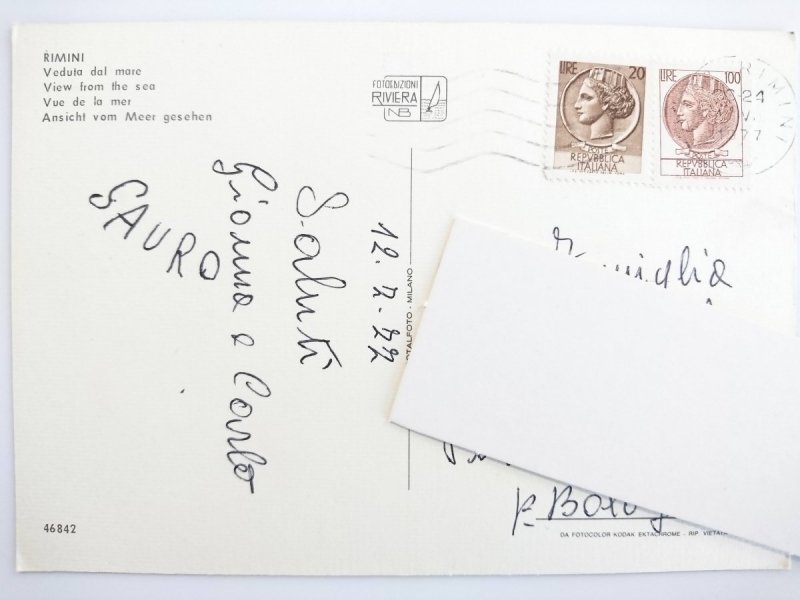 RIMINI
Veduta dal mare
View from the sea
Vue de la mer
Ansicht vom Meer gesehen
FOTOEDIZIONI
RIVIERA
NB
LIRE 20
POSTE
REPVBBLICA
ITALIANA
LIRE 100
POSTE
REPVBBLICA
ITALIANA
RIMINI
24
12.7-77
Saluti
Gionna e Carlo
GAURO
OTALFOTO - MILANO
Famiglia
46842
DA FOTOCOLOR KODAK EKTACHROME - RIP. VIETAT